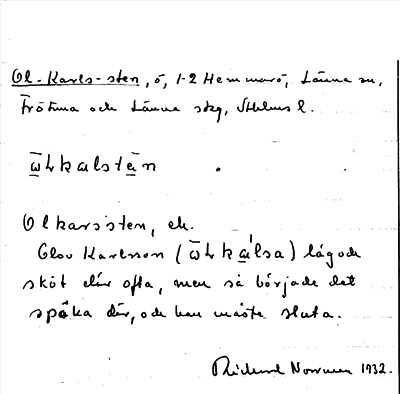 Ol-Karls-sten, ö, 1-2 Hemmarö, Länna sn,
Frötuna och Länna skg, Sthlms l.
ω̄Lkalstān
Olkarssten, ek.
Olov Karlsson (ω̄Lkalsa) låg och
sköt där ofta, men så började det
spöka där, och han måste sluta.
Rickard Norman 1932.